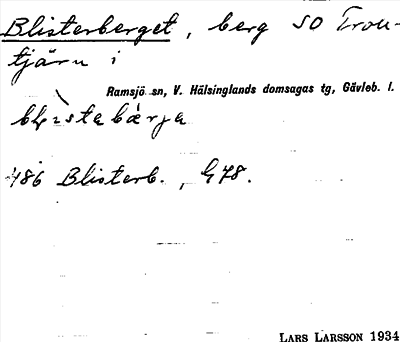 Blisterberget, berg SO Tron-
tjärn i
Ramsjö sn, V. Hälsinglands domsagas tg, Gävleb. l.
486 Blisterb., G78.
LARS LARSSON 1934